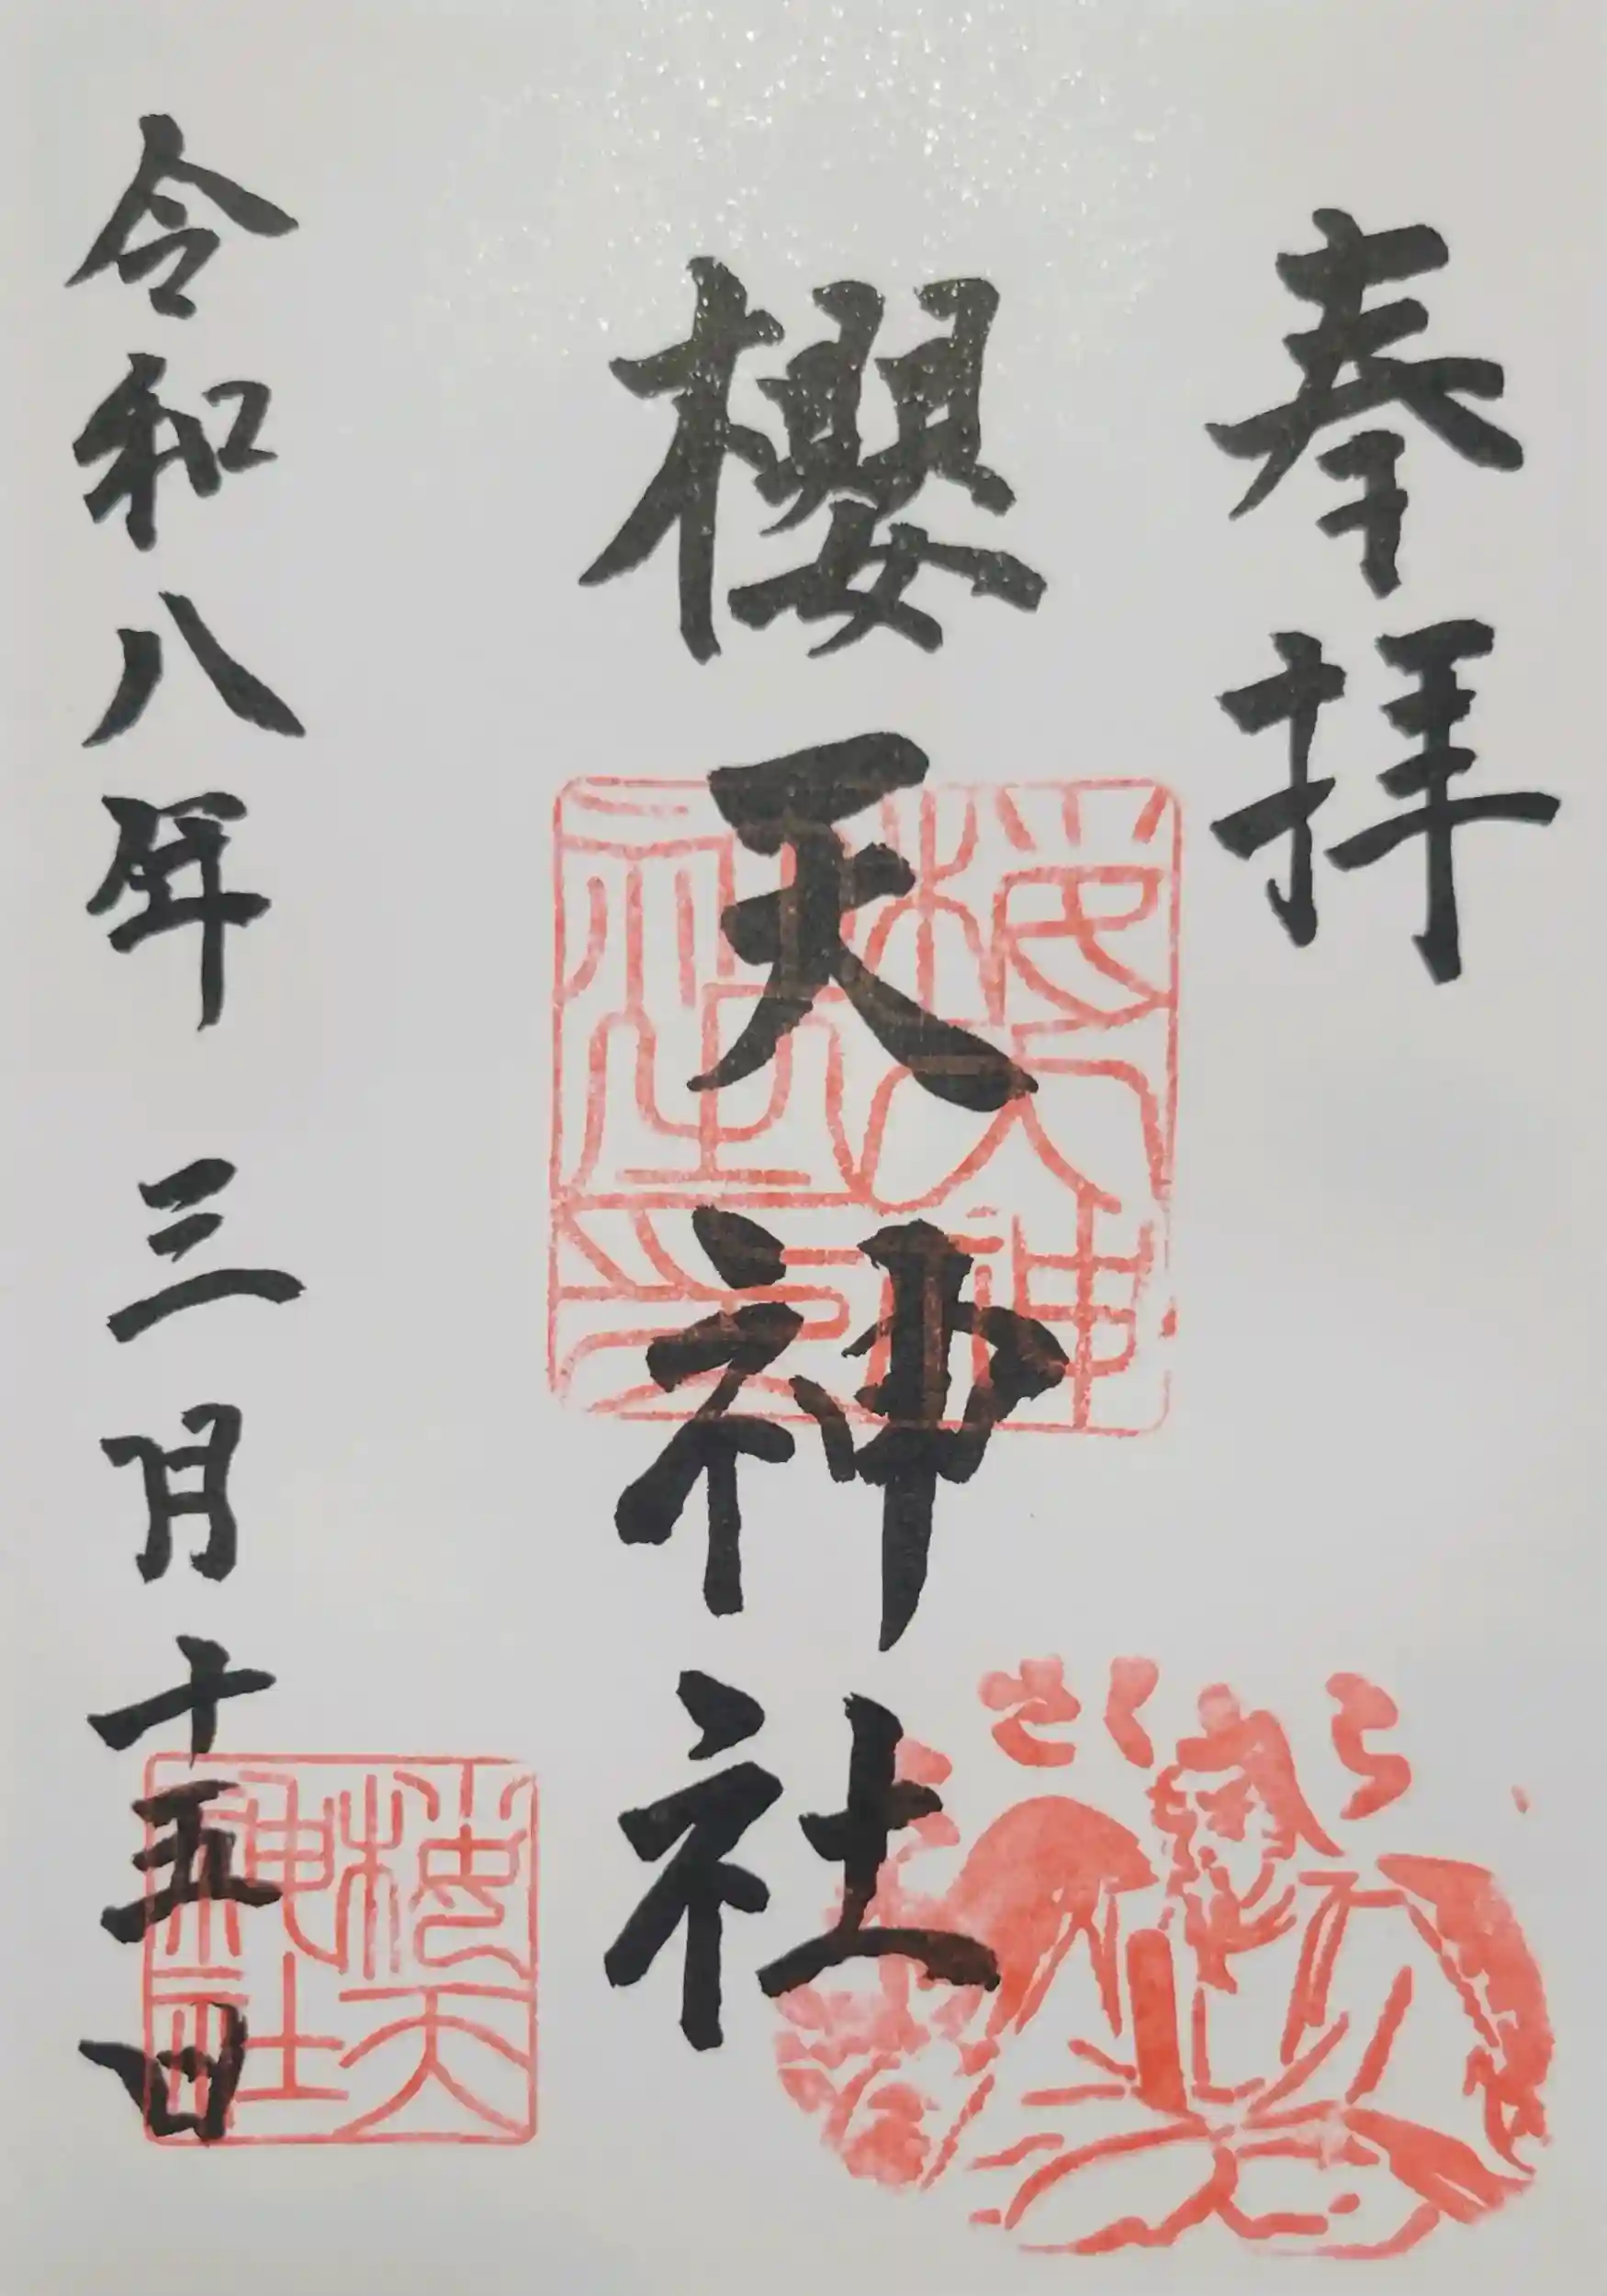 奉拝
櫻天神社
令和八年 三月十五日
櫻天神社印
さくら
櫻天神社